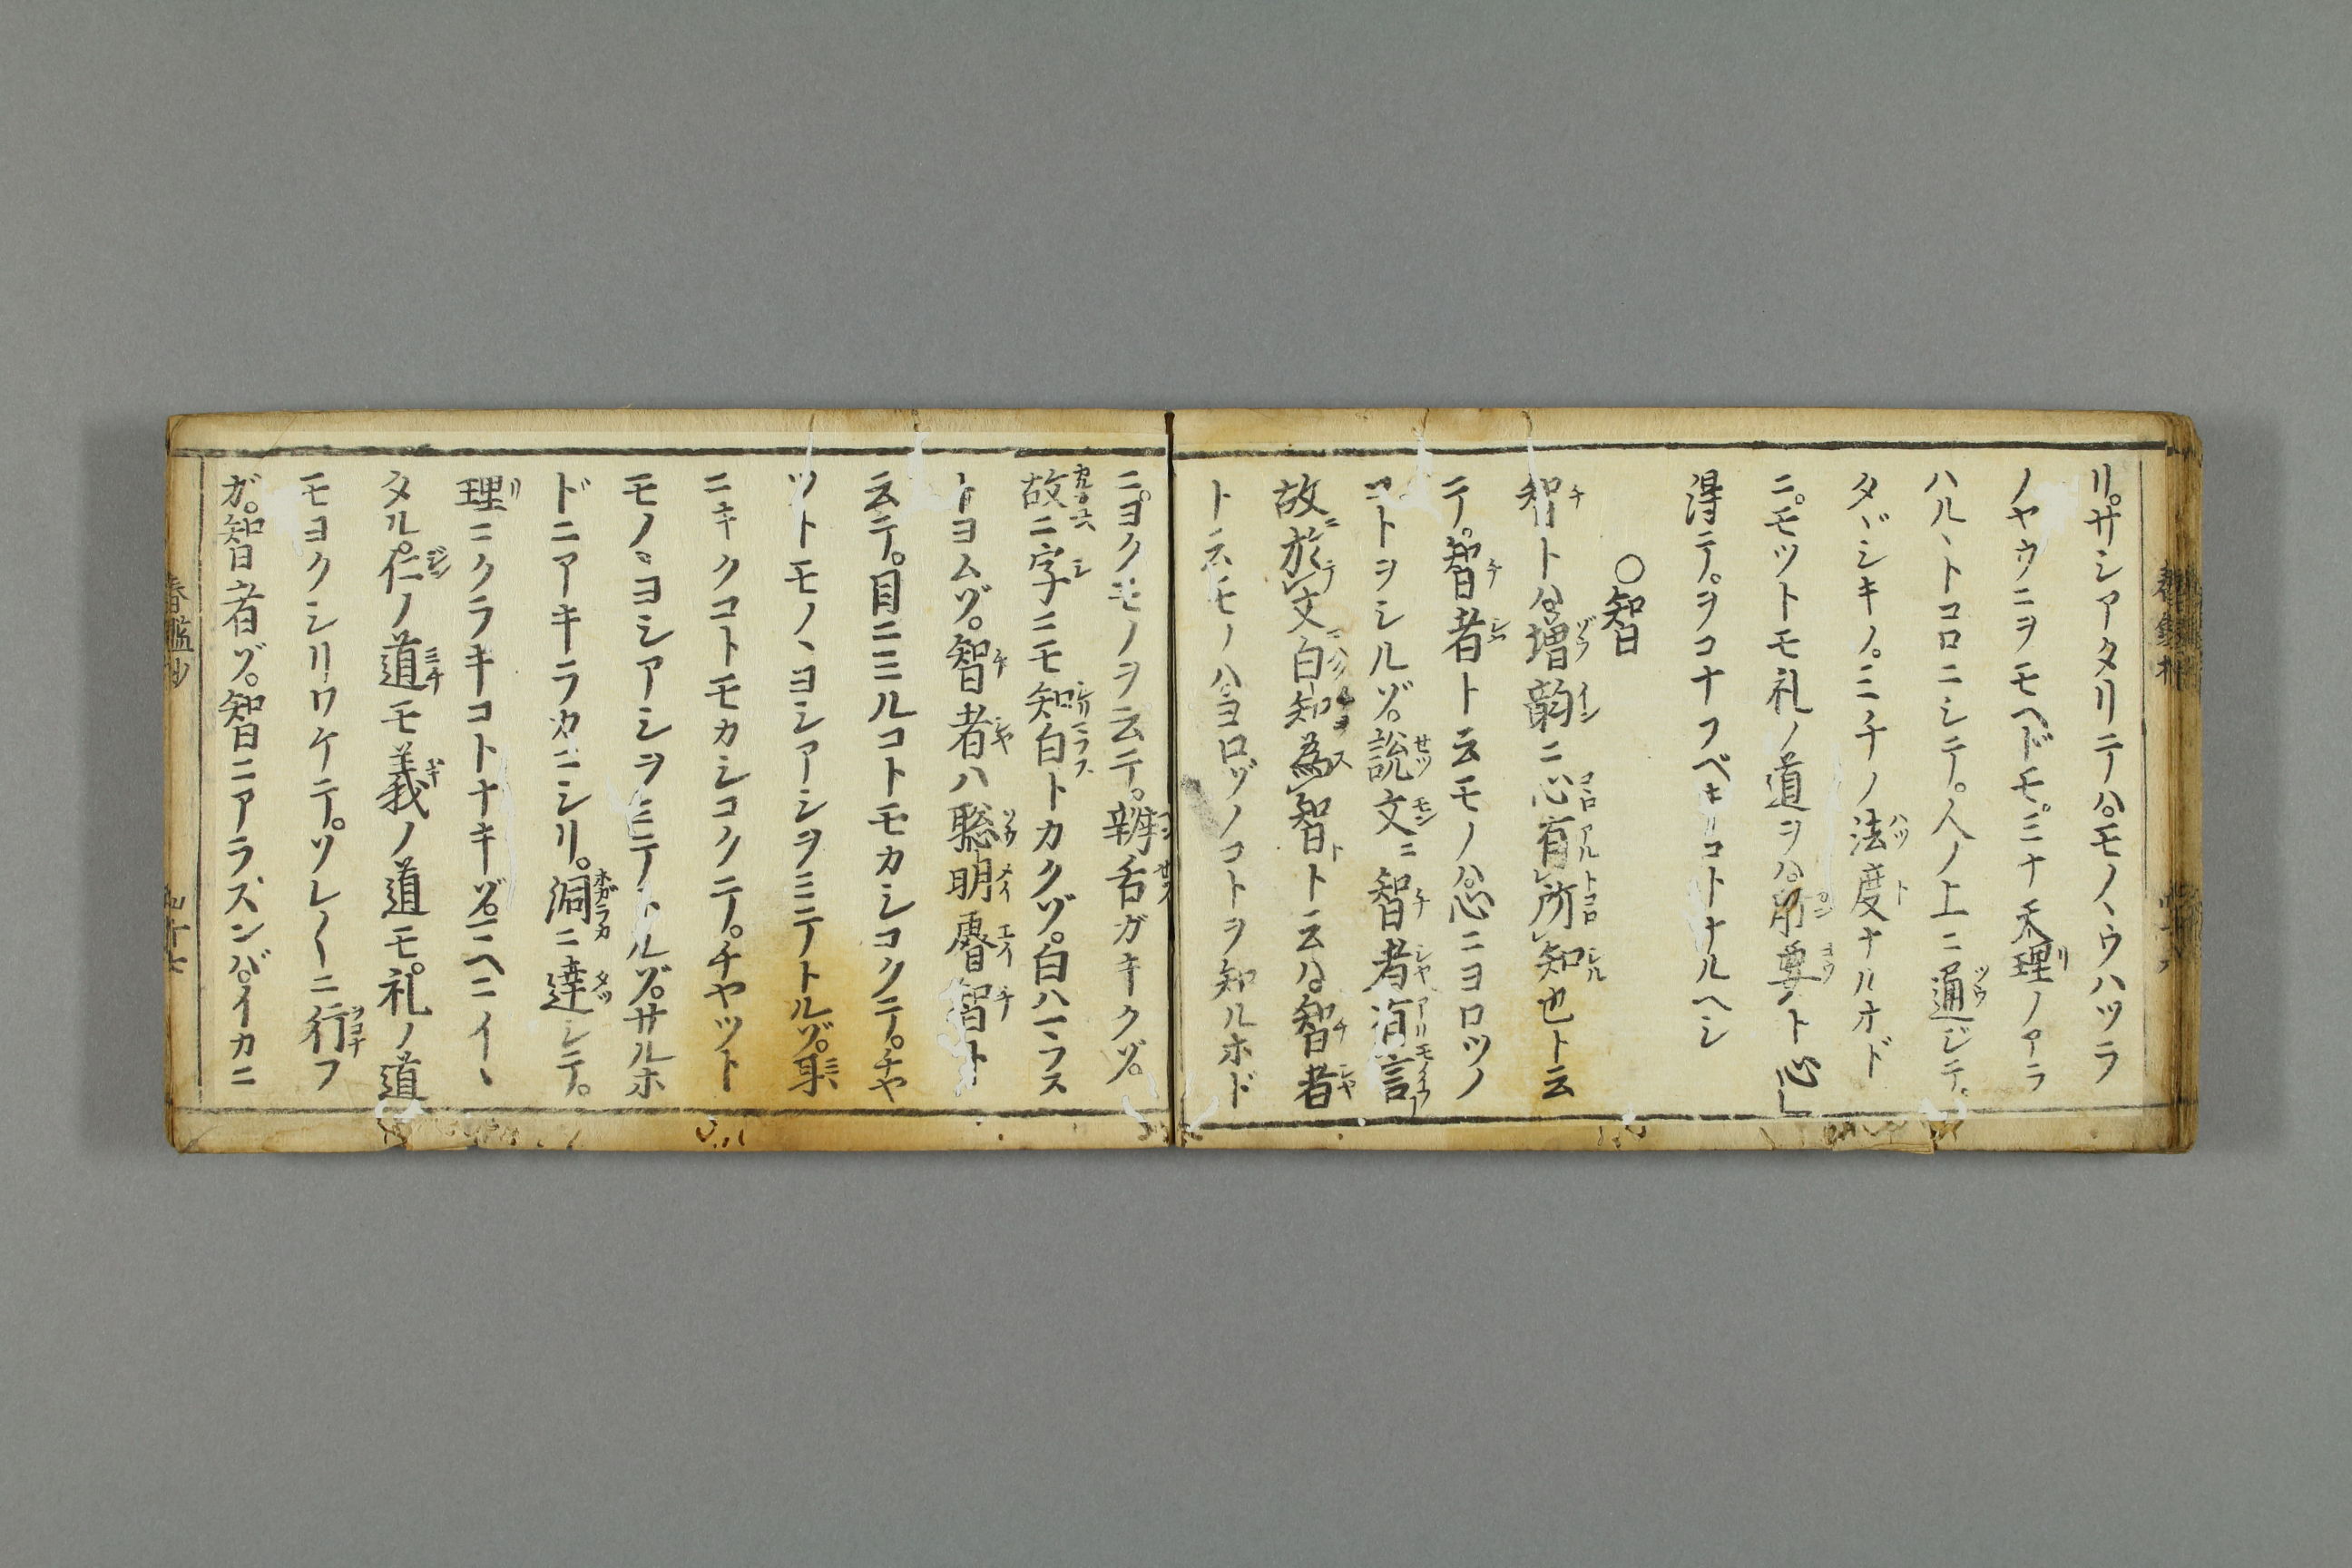 リ。サシアタリテハ。モノヽウハツラ
ノヤウニヲモヘドモ。ミナ天理ノアラ
ハルヽトコロニシテ。人ノ上ニ通ジテ。
タヾシキノ。ミチノ法度ナルホド
ニ。モツトモ礼ノ道ヲハ。肝要ト心
得テ。ヲコナフベキコトナルヘシ
〇智
智トハ。増韵ニ心有所知也ト云
テ。智者ト云モノハ。心ニヨロツノ
コトヲシルゾ。説文ニ智者有言
故於文白知為智トト云ハ。智者
ト云モノハヨロヅノコトヲ知ルホド
ニ。ヨクモノヲ云テ。辨舌ガキクゾ。
故ニ字ニモ知白トカクゾ。白ハマウス
トヨムゾ。智者ハ聡明睿智ト
云テ。目ニミルコトモカシコクテ。チヤ
ツトモノヽヨシアシヲミテトルゾ。耳
ニキクコトモカシコクテ。チヤツト
モノヽヨシアシヲミテトルゾ。サルホ
ドニアキラカニシリ。洞ニ達シテ。
理ニクラキコトナキゾ。上ニイヽ
タル。仁ノ道モ義ノ道モ。礼ノ道
モヨクシリワケテ。ソレ〱ニ行フ
ガ。智者ゾ。智ニアラズンバ。イカニ
春鑑抄